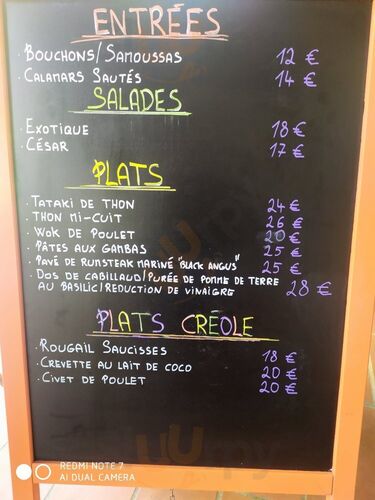 ENTRÉES
. BOUCHONS/SAMOUSSAS 12 €
. CALAMARS SAUTÉS 14 €
SALADES
. EXOTIQUE 18 €
. CÉSAR 17 €
PLATS
. TATAKI DE THON 24 €
. THON MI-CUIT 26 €
. WOK DE POULET 20 €
. PÂTES AUX GAMBAS 25 €
. PAVÉ DE RUMSTEAK MARINÉ "BLACK ANGUS" 25 €
. DOS DE CABILLAUD/PURÉE DE POMME DE TERRE
AU BASILIC/REDUCTION DE VINAIGRE 28 €
PLATS CRÉOLE
. ROUGAIL SAUCISSES 18 €
. CREVETTE AU LAIT DE COCO 20 €
. CIVET DE POULET 20 €
REDMI NOTE 7
AI DUAL CAMERA